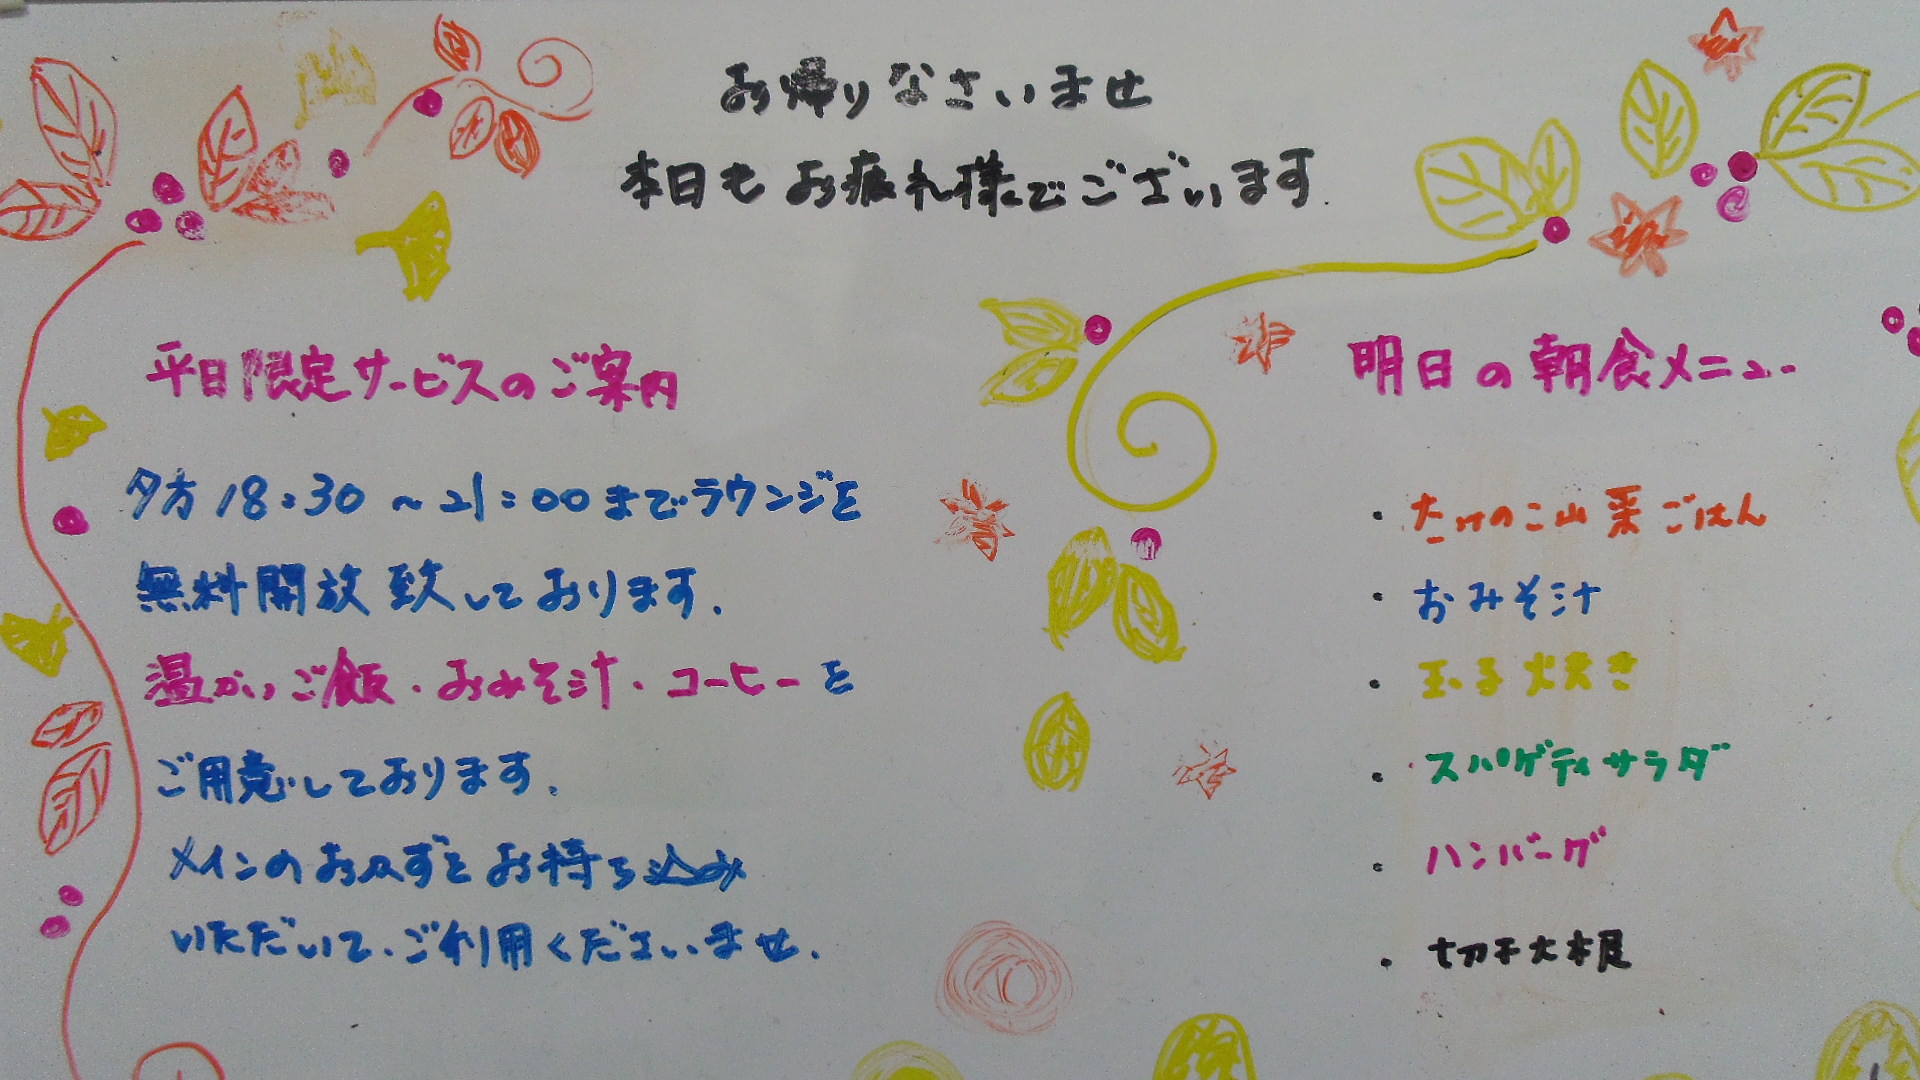 お帰りなさいませ
本日もお疲れ様でございます.
平日限定サービスのご案内
夕方18:30～21:00までラウンジを
無料開放致しております.
温かいご飯・おみそ汁・コーヒーを
ご用意しております.
メインのおかずをお持ち込み
いただいて、ご利用くださいませ.
明日の朝食メニュー
・たけのこ山菜ごはん
・おみそ汁
・玉子焼き
・スパゲティサラダ
・ハンバーグ
・切干大根